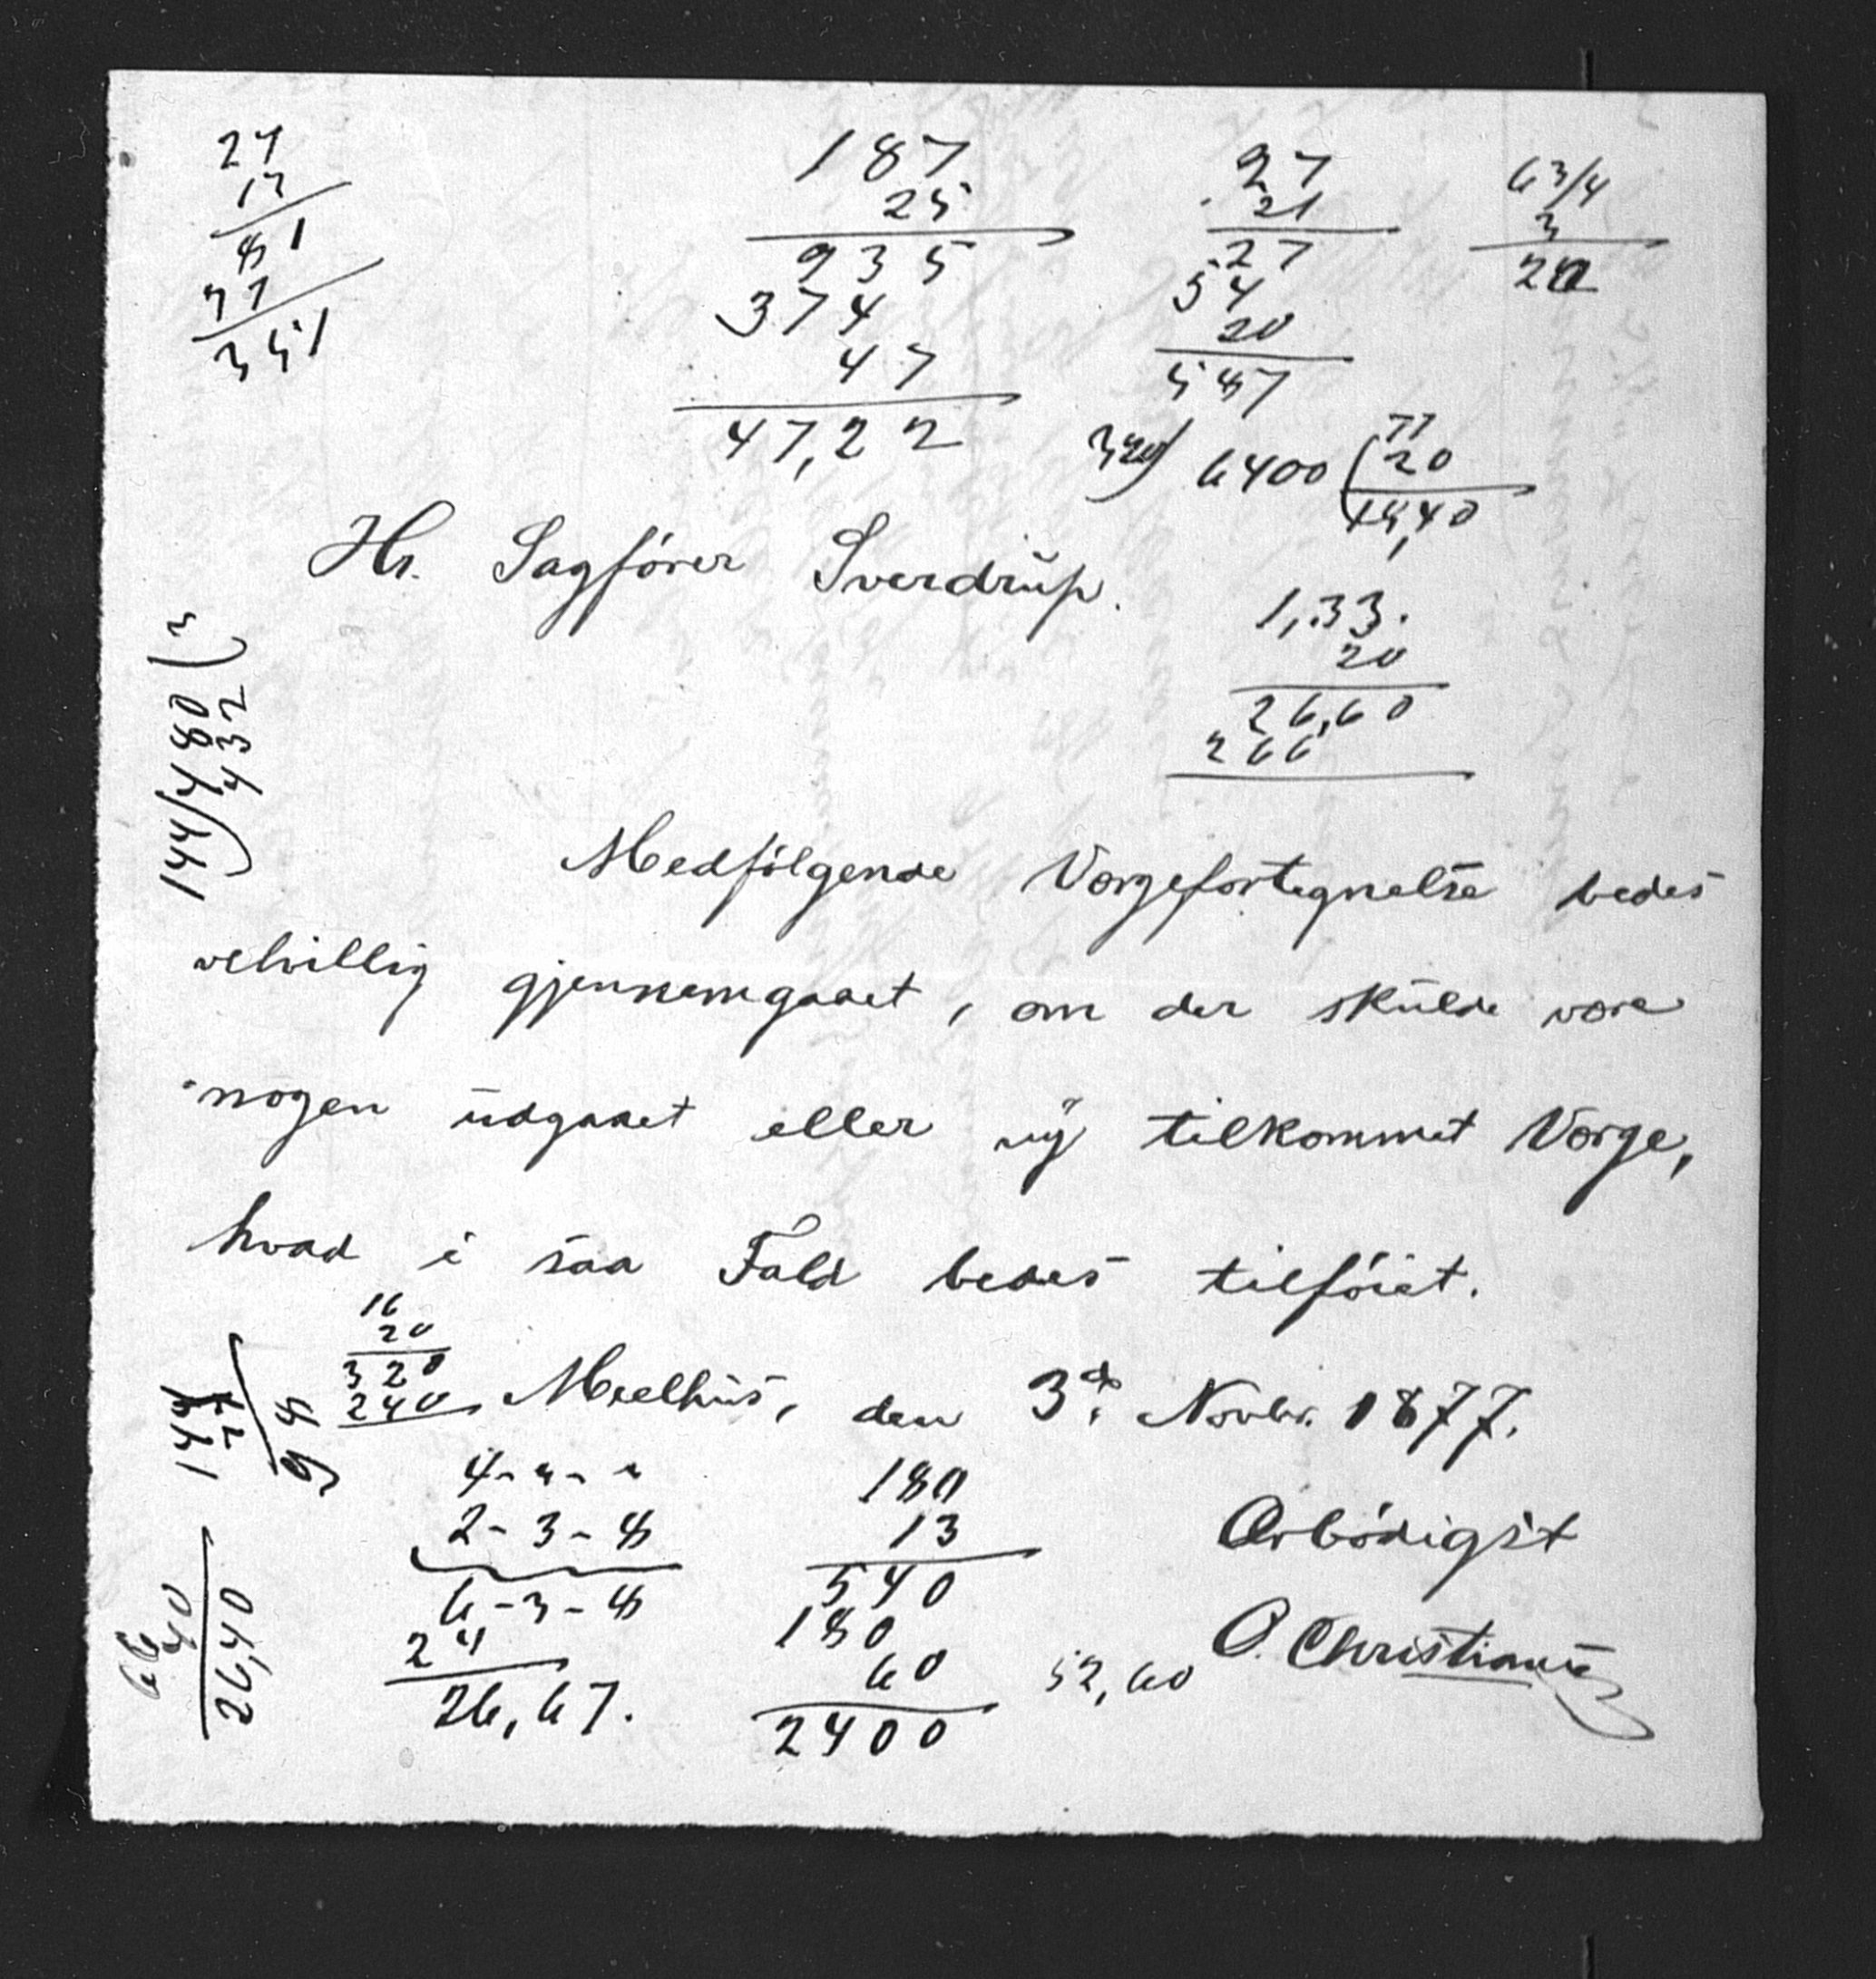 187
25
935
374
47
47,22
27
21
27
54
20
587
6 3/4
3
20
6400
20
Hr. Sagfører Sverdrup.
1,33.
20
26,60
266
144/480(3
432
Medfølgende Vergefortegnelse bedes
velvillig gjennemgaaet, om der skulde være
nogen udgaaet eller ny tilkommet Verge,
hvad i saa Fald bedes tilføiet.
16
20
320
240
Meelhus, den 3die Novbr. 1877.
2-3-8
6-3-8
24
26,67.
180
13
540
180
60
2400
52,60
Ærbødigst
O. Christiansen
66
40
26,40